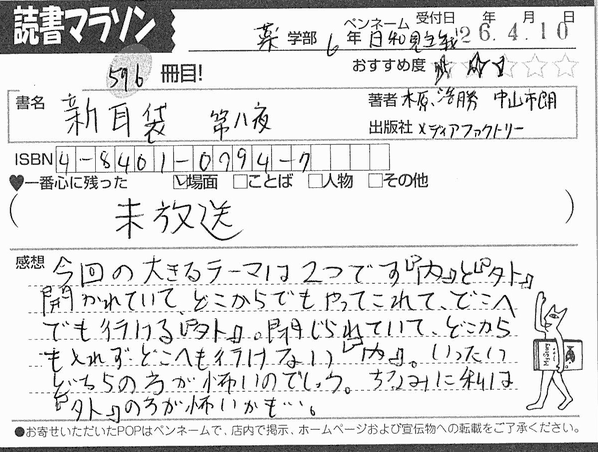 読書マラソン
薬 学部 6 年 ペンネーム 日和見主義 受付日 '26年 4月 10日
596 冊目! おすすめ度 ★★★☆☆☆
書名 新耳袋 第八夜
著者 木原浩勝 中山市朗
出版社 メディアファクトリー
ISBN 4-8401-0794-7
♥一番心に残った ☑場面 □ことば □人物 □その他
( 未放送 )
感想 今回の大きるテーマは2つです『内』と『外』
開かれていて、どこからでもやってこれて、どこへ
でも行ける『外』。閉じられていて、どこから
もくれずどこへも行けない『内』。いったい
どちらの方が怖いのでしょう。ちなみに私は
『外』の方が怖いかも…。
●お寄せいただいたPOPはペンネームで、店内で掲示、ホームページおよび宣伝物への転載をご了承ください。